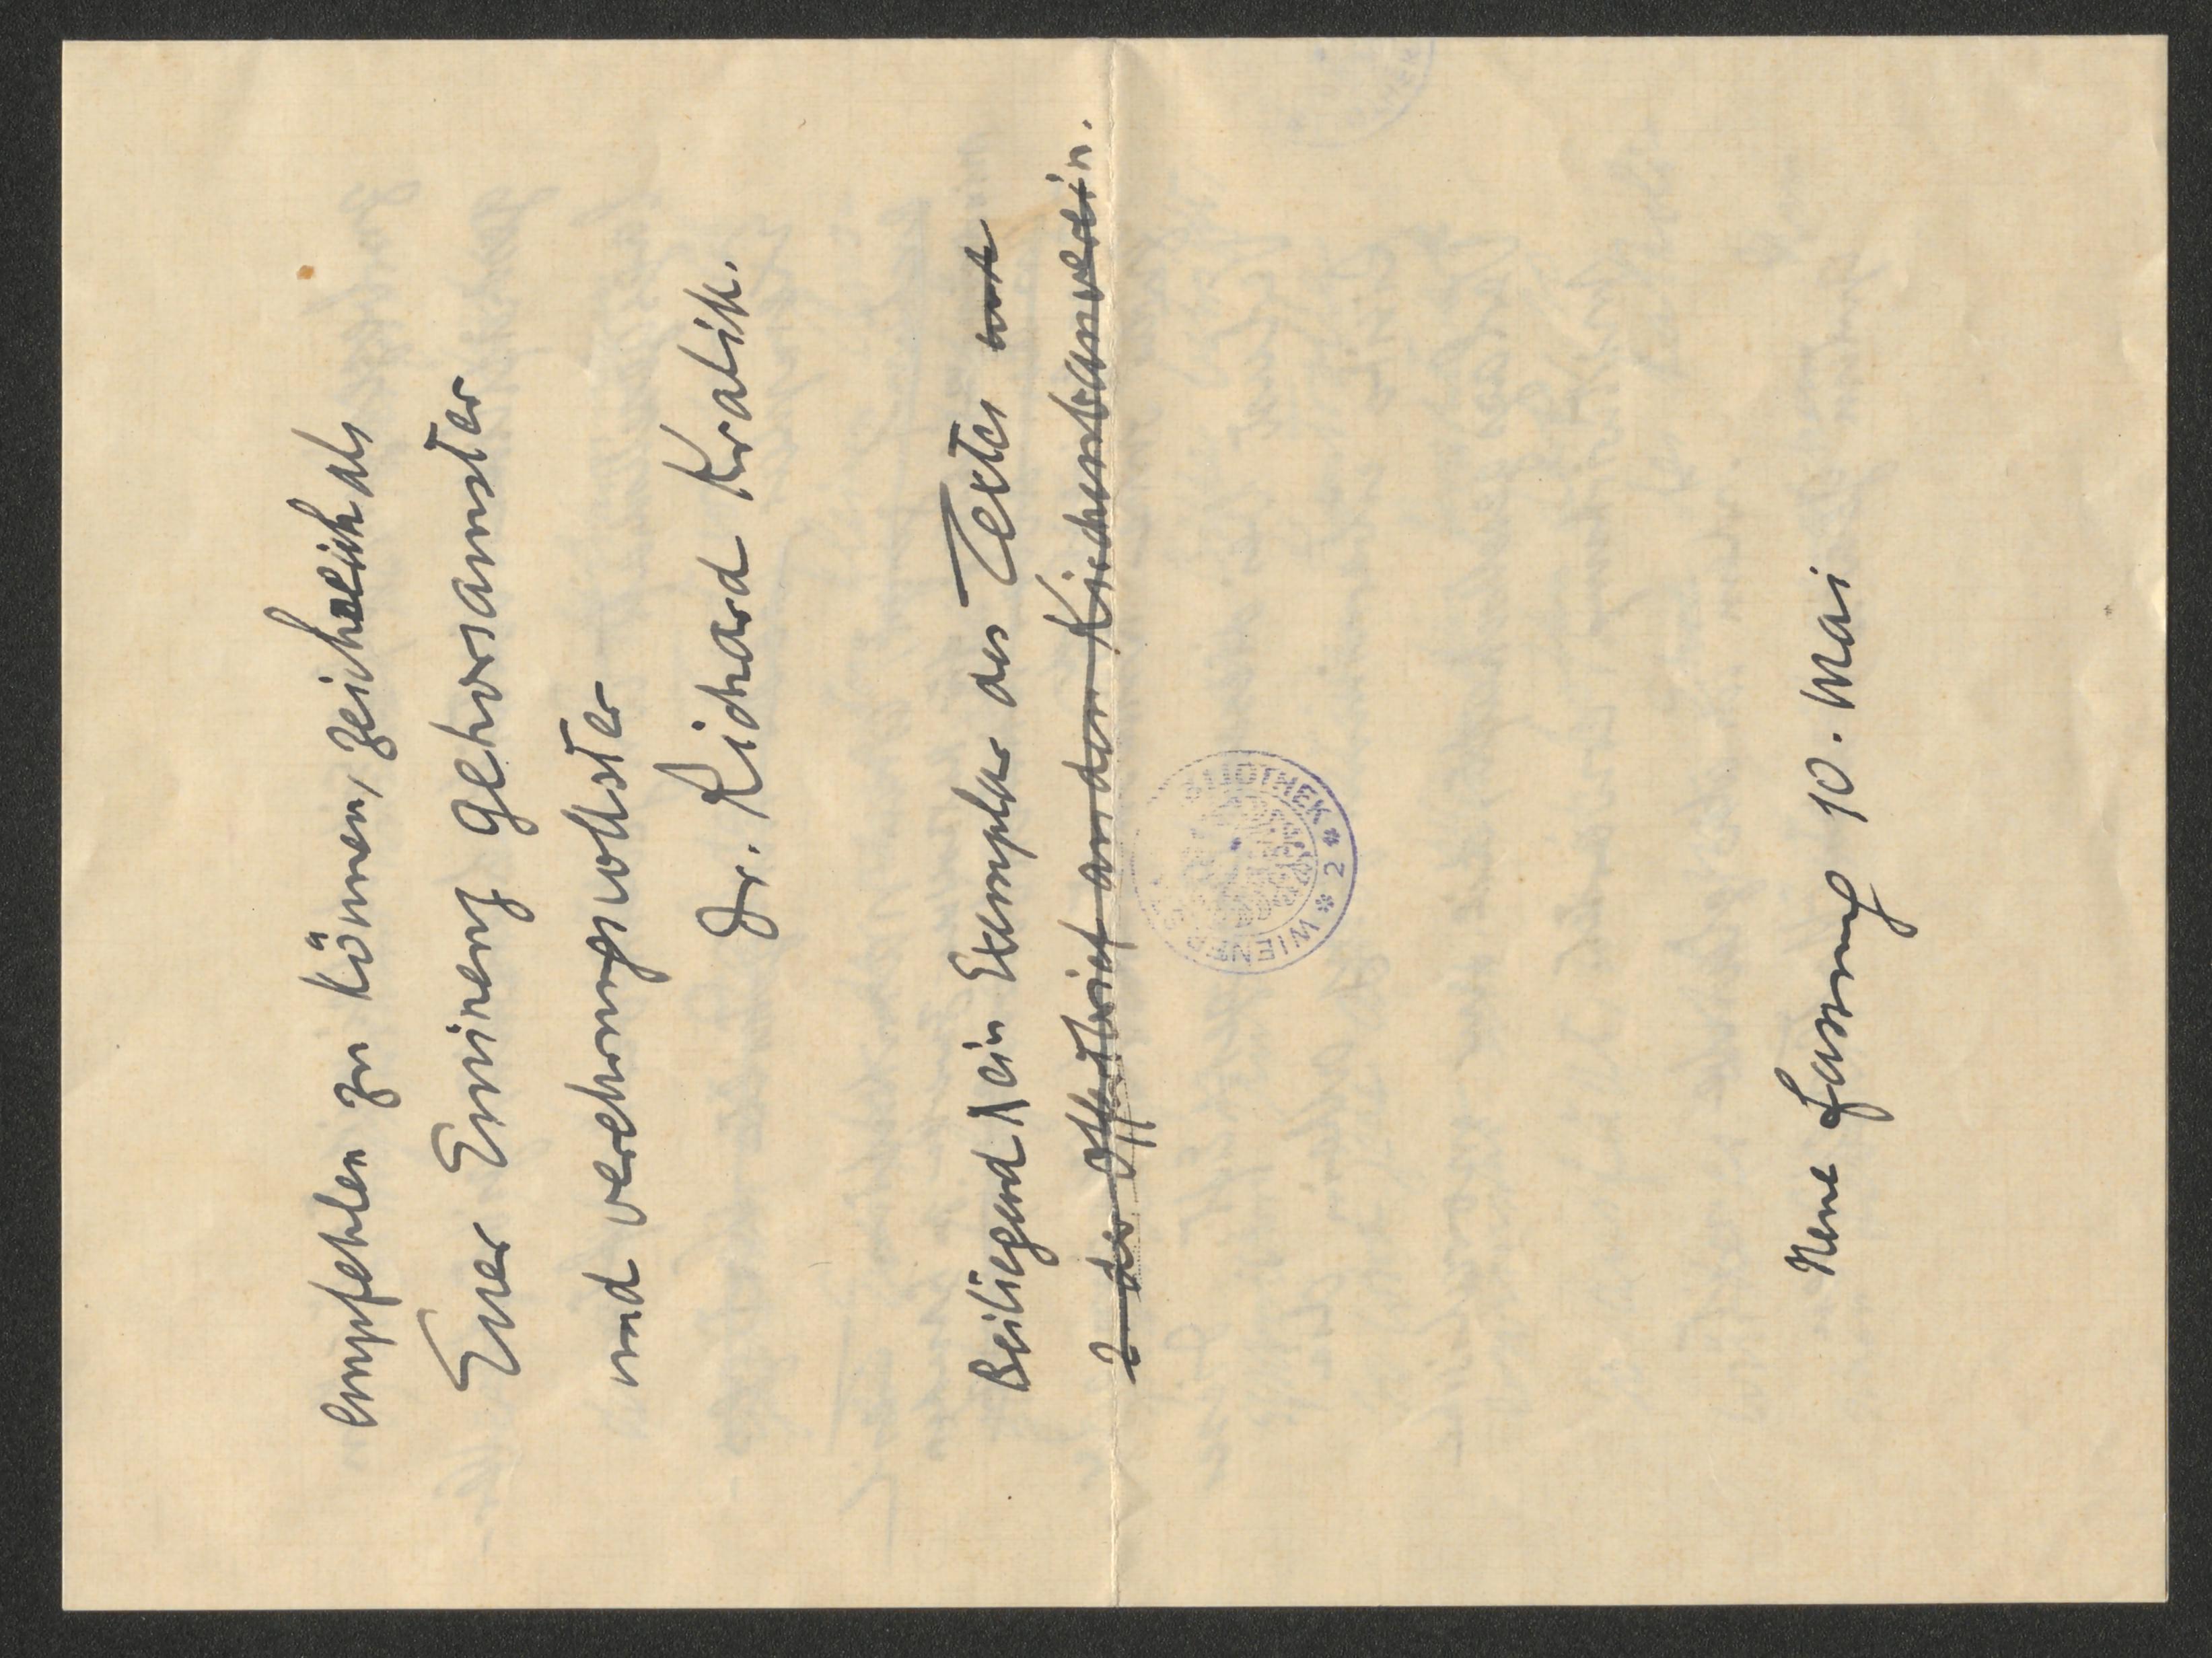 empfehlen zu können, zeichne ich als
Euer Eminenz gehorsamster
und verehrungsvollster
Dr. Richard Kralik.
Beiliegend 1 ein Exemplar des Textes und
2. der Offertbrief an den Kirchenbauverein.
WIENER BIBLIOTHEK * 2 *
Neue Fassung 10. Mai